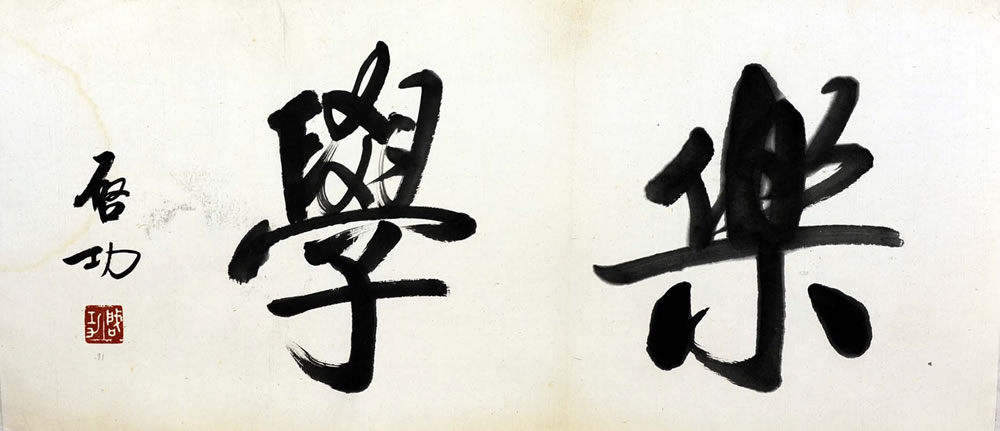 樂學
啓功
啓功